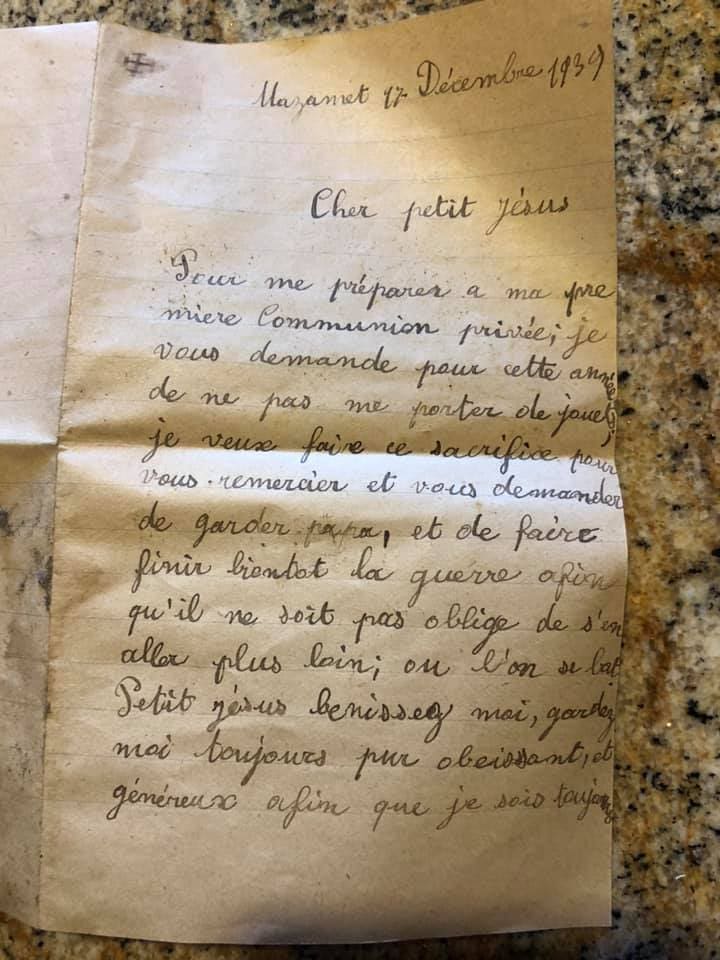 Mazamet 17 Décembre 1939
Cher petit Jésus
Pour me préparer a ma pre
miere Communion privée; je
vous demande pour cette année
de ne pas me porter de jouets;
je veux faire ce sacrifice pour
vous remercier et vous demander
de garder papa, et de faire
finir bientot la guerre afin
qu'il ne soit pas oblige de s'en
aller plus loin; ou l'on se bat
Petit jésus benissez moi, gardez
moi toujours pur obeissant, et
généreux afin que je sois toujours